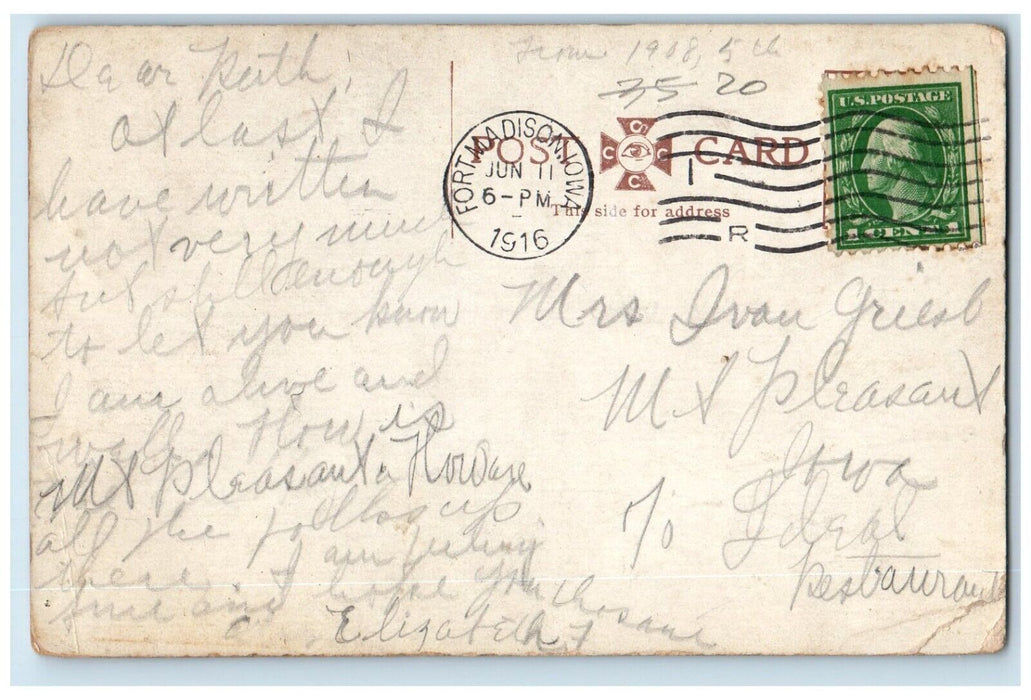 From 1908, 5th
35 20
POST CARD
C C C C
This side for address
FORT MADISON, IOWA
JUN 11
6-PM
1916
R
U.S. POSTAGE
1 CENT 1
Dear Ruth,
at last I
have written
not very much
but still enough
to let you know
I am alive and
well. How is
Mt Pleasant & How are
all the folks up
there. I am feeling
fine and hope you the same
Elizabeth F
Mrs Ivan Griesb
Mt Pleasant
Iowa
c/o Ideal
Restaurant